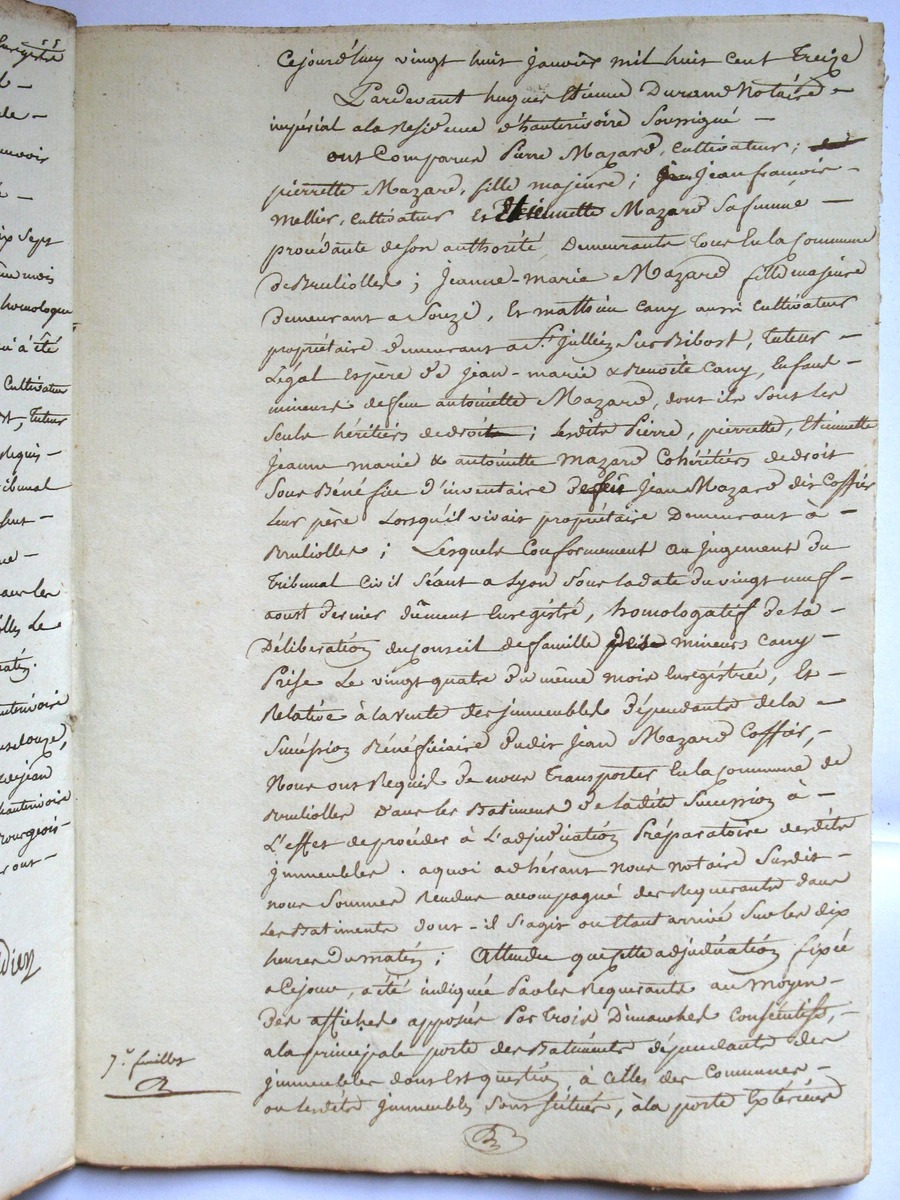 Cejourd'huy vingt huit janvier mil huit cent Treize
Pardevant hugues Etienne Durand Notaire
impérial a la Residence d'hauterivoire Soussigné
ont Comparus Pierre Mazard, Cultivateur;
pierrette Mazard, fille majeure; Jean françois
Mellier, Cultivateur Et Etiennette Mazard Sa femme
procédante de son authorité, Demeurants Tous En la Commune
de Brulliolles; Jeanne-marie Mazard fille majeure
Demeurant a Souzi, Et mathieu Cany aussi Cultivateur
propriétaire demeurant a St. Jullien Sur Bibost, Tuteur
Légal Et père de Jean-marie & Benoite Cany, Enfants
mineurs de feue antoinette Mazard, dont ils Sont les
Seuls héritiers de droit; lesdits Pierre, pierrette, Etiennette
Jeanne marie & antoinette mazard Cohéritiers de droit
Sous Bénéfice d'inventaire de feu Jean Mazard dit Coffier
Leur père Lorsqu'il vivait propriétaire Demeurant à
Brulliolles; Lesquels Conformement au jugement du
Tribunal Civil Séant a Lyon Sous la date du vingt neuf
aoust dernier dûment Enregistré, homologatif de la
Délibération du Conseil de famille des mineurs Cany
Prise Le vingt quatre du même mois Enregistrée, Et
Relative à la vente des immeubles dépendants de la
Succéssion Bénéficiaire dudit Jean Mazard Coffier,
Nous ont Requis de nous Transporter En la Commune de
Brulliolles Dans les Batiments de la dite Succession à
L'effet de procéder à L'adjudication Préparatoire desdits
immeubles. aquoi adhérant nous notaire Susdit
nous Sommes Rendus accompagné des Requerants dans
Les Batiments dont-il S'agit ou Etant arrivé Sur les dix
heures du matin; Attendu que cette adjudication fixée
a Ce jour, a été indiquée Par les Requerants au moyen
Des affiches apposées Par Trois Dimanches Conséutifs,
a la principale porte des Batiments dépendants des
immeubles dont Est question, à Celles des Communes
ou lesdits immeubles Sont Situés, à la porte Extérieure
7e. feuillet